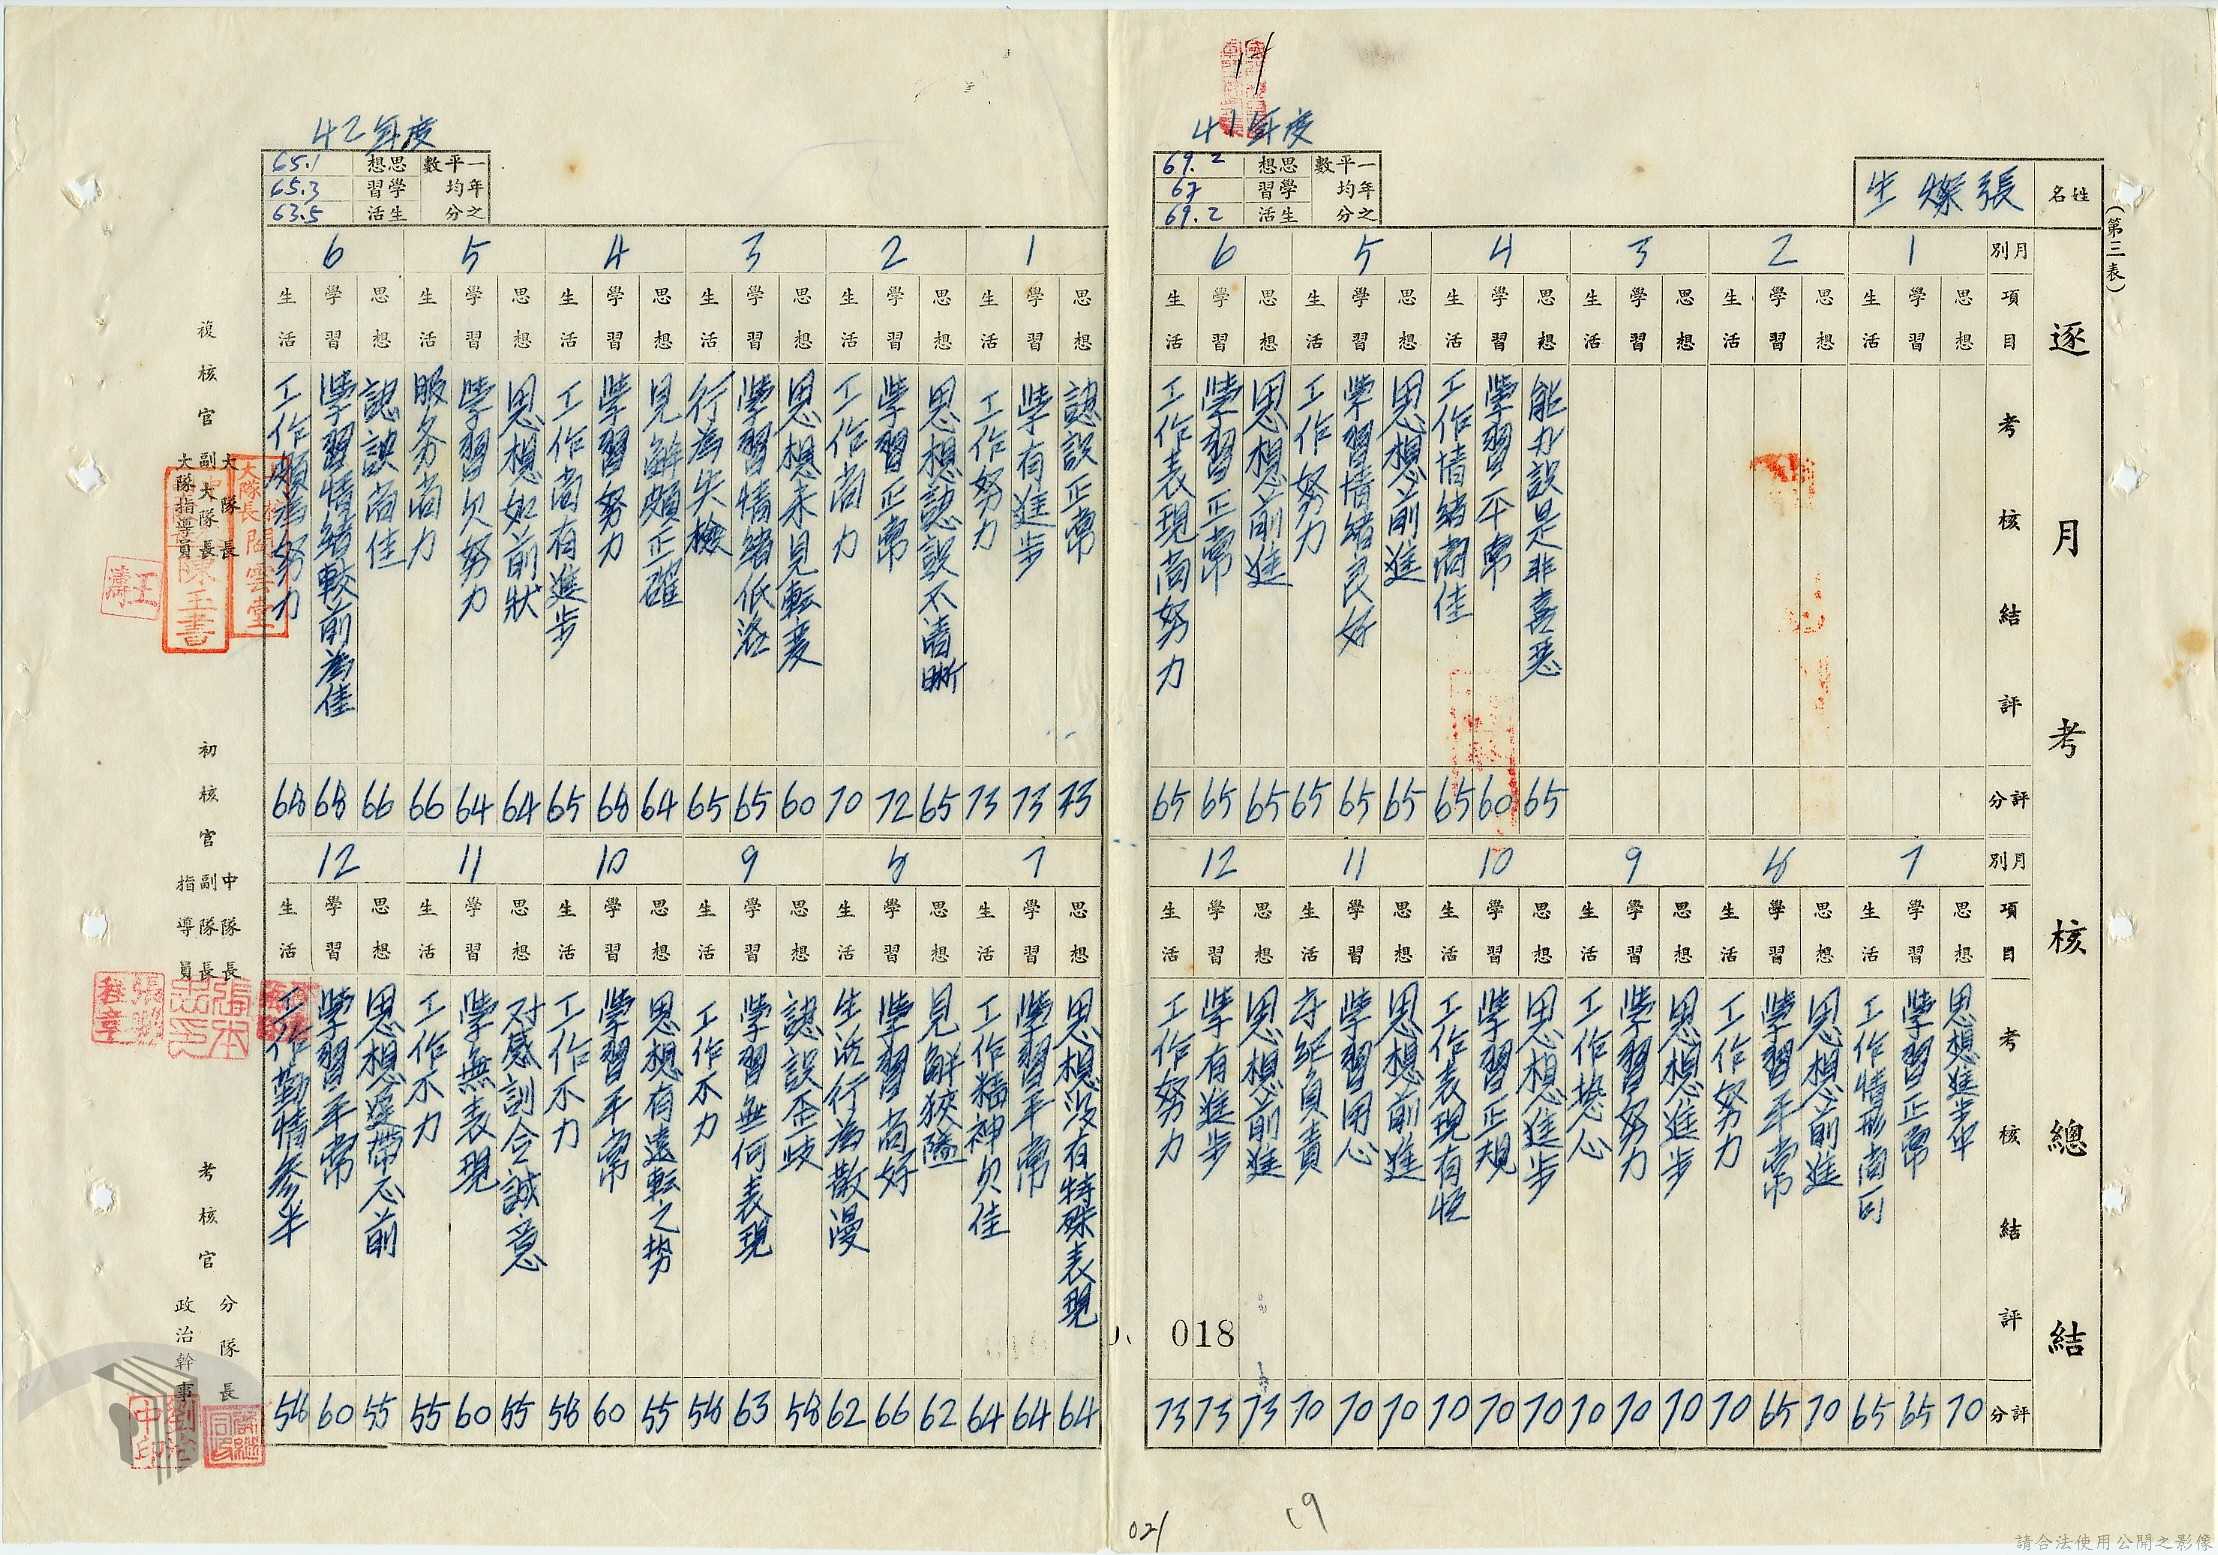 (第三表)
逐月考核總結
姓名
張燦生
41年度
一年之平均分數
思想 69.2
學習 67
生活 69.2
月別
1
2
3
4
5
6
項目
思想
學習
生活
思想
學習
生活
思想
學習
生活
思想
學習
生活
思想
學習
生活
思想
學習
生活
考核結評
能力誤是非善惡
學習平常
工作情緒尚佳
思想前進
學習情緒良好
工作努力
思想前進
學習正常
工作表現尚努力
評分
65
60
65
65
65
65
65
65
65
月別
7
8
9
10
11
12
項目
思想
學習
生活
思想
學習
生活
思想
學習
生活
思想
學習
生活
思想
學習
生活
思想
學習
生活
考核結評
思想進步中
學習正常
工作情形尚可
思想前進
學習平常
工作努力
思想進步
學習努力
工作熱心
思想進步
學習正規
工作表現有恒
思想前進
學習用心
守紀負責
思想前進
學有進步
工作努力
評分
70
65
65
70
65
70
70
70
70
70
70
70
70
70
70
73
73
73
018
42年度
一年之平均分數
思想 65.1
學習 65.3
生活 63.5
1
2
3
4
5
6
思想
學習
生活
思想
學習
生活
思想
學習
生活
思想
學習
生活
思想
學習
生活
思想
學習
生活
認誤正常
學有進步
工作努力
思想認誤不清晰
學習正常
工作尚力
思想未見転变
學習情緒低落
行為失檢
見解頗正確
學習努力
工作尚有進步
思想如前狀
學習欠努力
服务尚力
認誤尚佳
學習情緒較前為佳
工作頗為努力
73
73
73
65
72
70
60
65
65
64
68
65
64
64
66
66
68
68
7
8
9
10
11
12
思想
學習
生活
思想
學習
生活
思想
學習
生活
思想
學習
生活
思想
學習
生活
思想
學習
生活
思想沒有特殊表現
學習平常
工作精神欠佳
見解狹隘
學習尚好
生活行為散漫
認誤歪歧
學習無何表現
工作不力
思想有遠転之势
學習平常
工作不力
对感訓今誠意
學無表現
工作不力
思想遲帶不前
學習平常
工作勤惰參半
64
64
64
62
66
62
58
63
58
55
60
58
55
60
55
55
60
58
複核官
大隊長
副大隊長
大隊指導員
大隊長閻雲堂
陳玉書
初核官
中隊長
副隊長
指導員
考核官
分隊長
政治幹事
021
19
請合法使用公開之影像